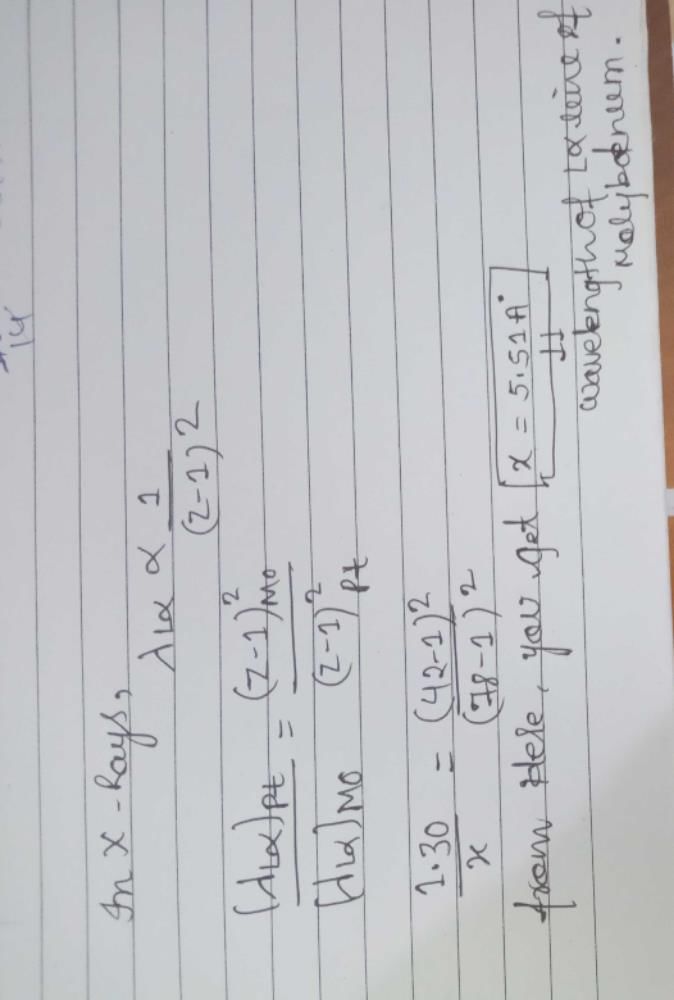 In X-Rays,
λLα ∝ 1
(Z-1)2
(λLα)Pt = (Z-1)2Mo
(λLα)Mo (Z-1)2Pt
1.30 = (42-1)2
x (78-1)2
from here, you get x = 5.51A°
wavelength of Lα line of
Molybdenum.
14